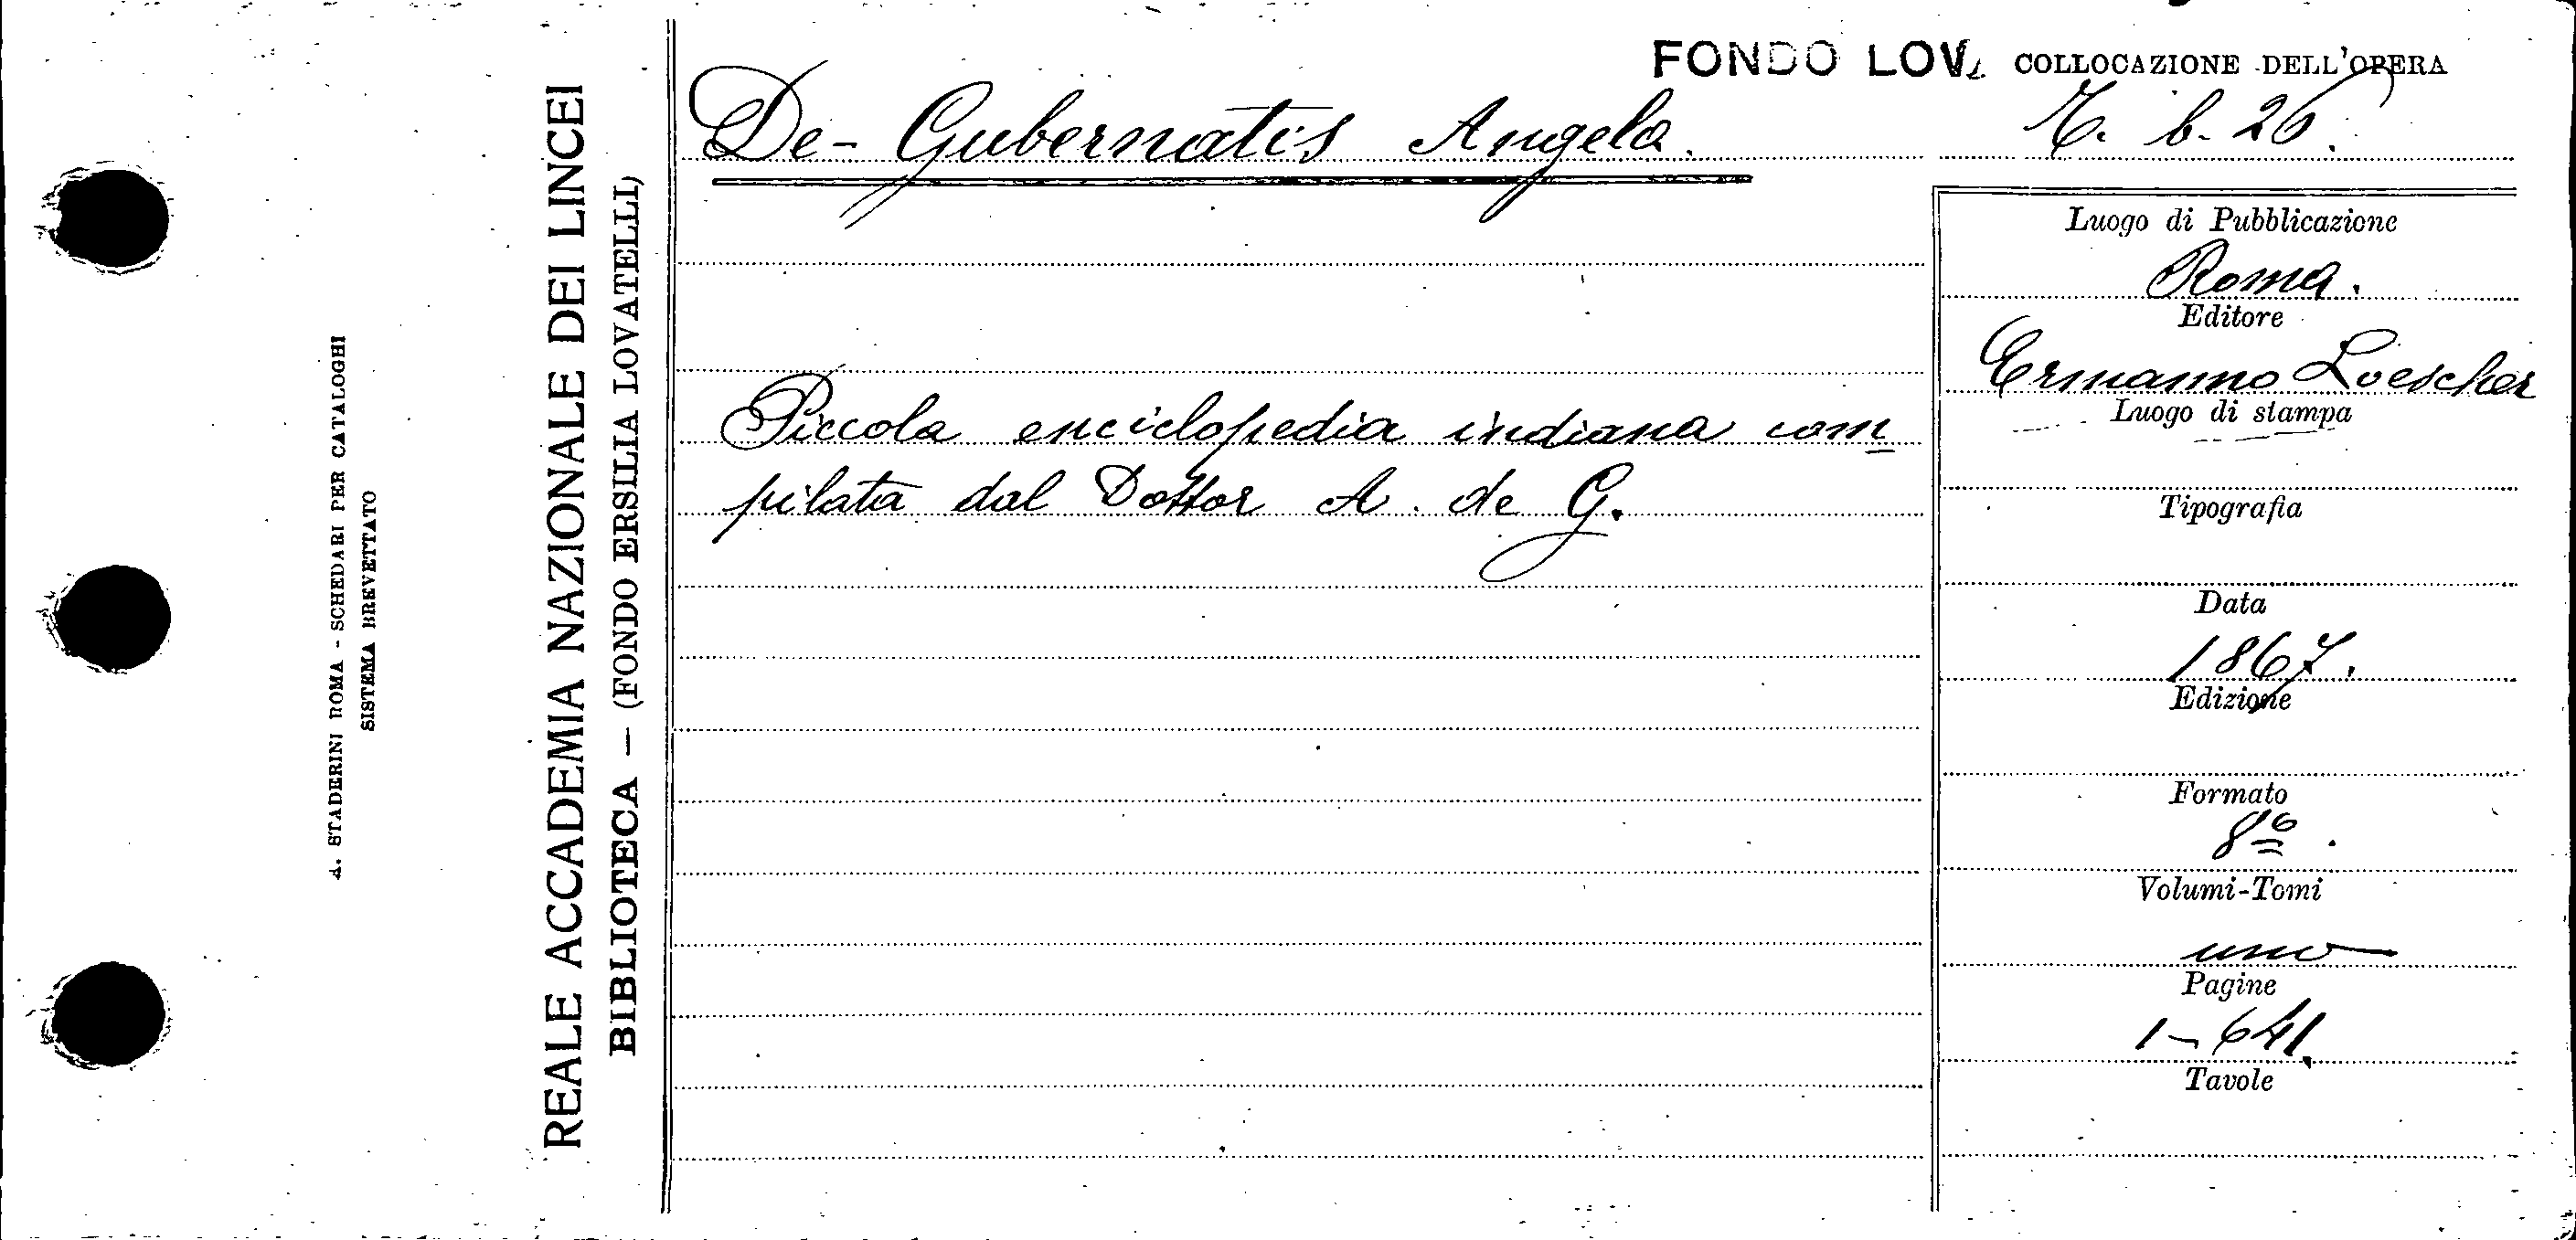 A. STADERINI ROMA - SCHEDARI PER CATALOGHI
SISTEMA BREVETTATO
REALE ACCADEMIA NAZIONALE DEI LINCEI
BIBLIOTECA — (FONDO ERSILIA LOVATELLI)
FONDO LOV. COLLOCAZIONE DELL'OPERA
De-Gubernatis Angelo.
b. 26.
Piccola enciclopedia indiana com
pilata dal Dottor A. de G.
Luogo di Pubblicazione
Roma.
Editore
Ermanno Loescher
Luogo di stampa
Tipografia
Data
1867.
Edizione
Formato
8º.
Volumi-Tomi
uno
Pagine
1-641.
Tavole